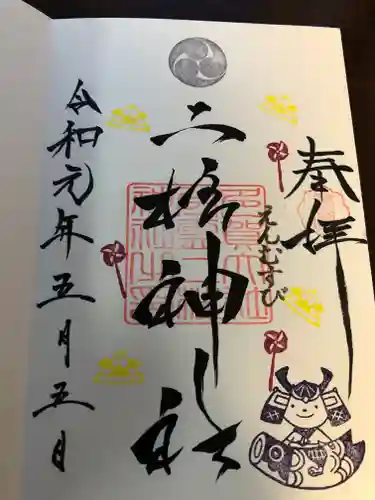 奉拝
えんむすび
二柱神社
令和元年五月五日